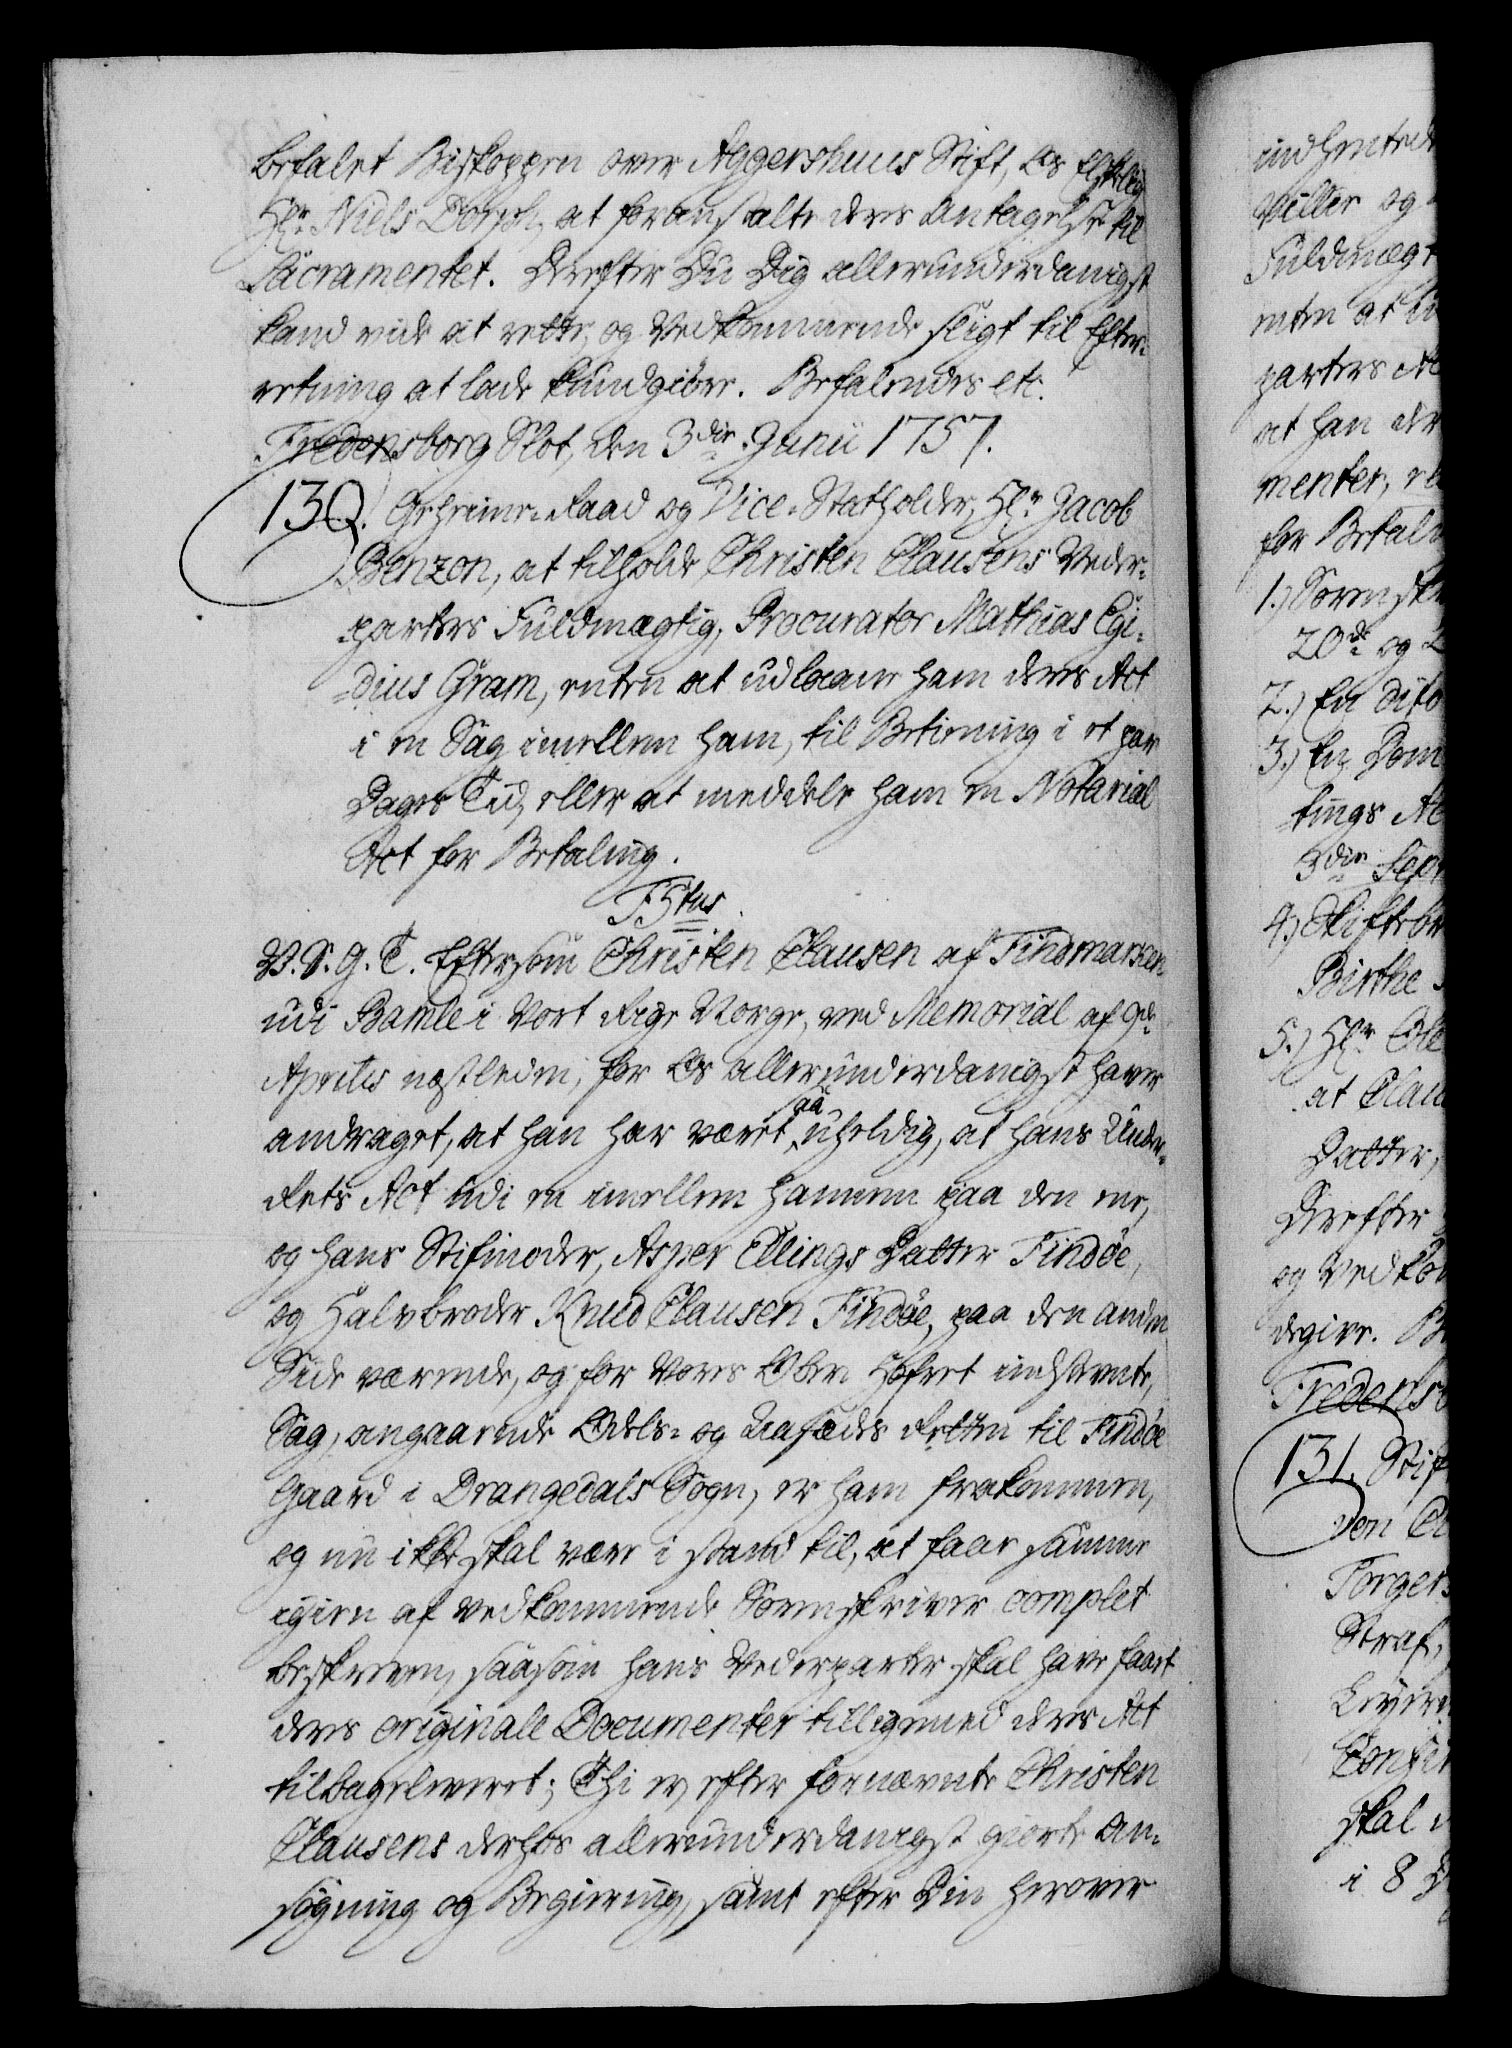 befalet Biskoppen over Aggershuus Stift, Os Elskelig
Hr. Niels Dorph, at foranstalte deres Antagelse til
Sacramentet. Derefter Du Dig allerunderdanigst
kand vide at rette, og Vedkommende sligt til Efter-
retning at lade kundgiøre. Befalendes etc.
Fredensborg Slot, den 3die Junii 1757.
130. Geheime-Raad og Vice-Statholder, Hr. Jacob
Benzon, at tilholde Christen Clausens Veder-
parters Fuldmægtig, Procurator Mathias Egi-
dius Gram, enten at udlaane ham deres Act
i en Sag imellem ham, til Betiening i et par
Dages Tid, eller at meddele ham en Notarial
Act for Betaling.
F5tus
V.S.G.T. Eftersom Christen Clausen af Findmarken
udi Bamle i Vort Rige Norge, ved Memorial af 9de
Aprilis næstleden, for Os allerunderdanigst haver
andraget, at han har været saa uheldig, at hans Under-
Rets Act udi en imellem hannem paa den ene,
og hans Stifmoder, Asper Ellings Datter Findøe,
og Halvbroder Knud Clausen Findøe, paa den anden
Side værende, og for Vores Ober-Hofret indstevnte,
Sag, angaaende Odels- og Aasædes Retten til Findøe
Gaard i Drangedals Sogn, er ham frakommen,
og nu ikke skal være i stand til, at faae samme
igien af vedkommende Sorenskriver complet
beskreven, saasom hans Vederparter skal have faaet
deres originale Documenter tilligemed deres Act
tilbageleveret; Thi er, efter fornævnte Christen
Clausens derhos allerunderdanigst giorte An-
søgning og Begiering, samt efter Din herover
indhentede
Villie og
Fuldmægt
enten at u
parters Ac
at han der
menter, re
for Betali
1.) Sorenskr
20de og 2
2.) En dito
3.) En Dom
tings Ac
3die Sept
4.) Skiftebr
Birthe
5.) Hr. Ole
at Clau
Datter,
Derefter
og Vedkom
degive. B
Fredensb
131. Stif
von
Torgers
Straf,
Leyerm
skal
i 8 D